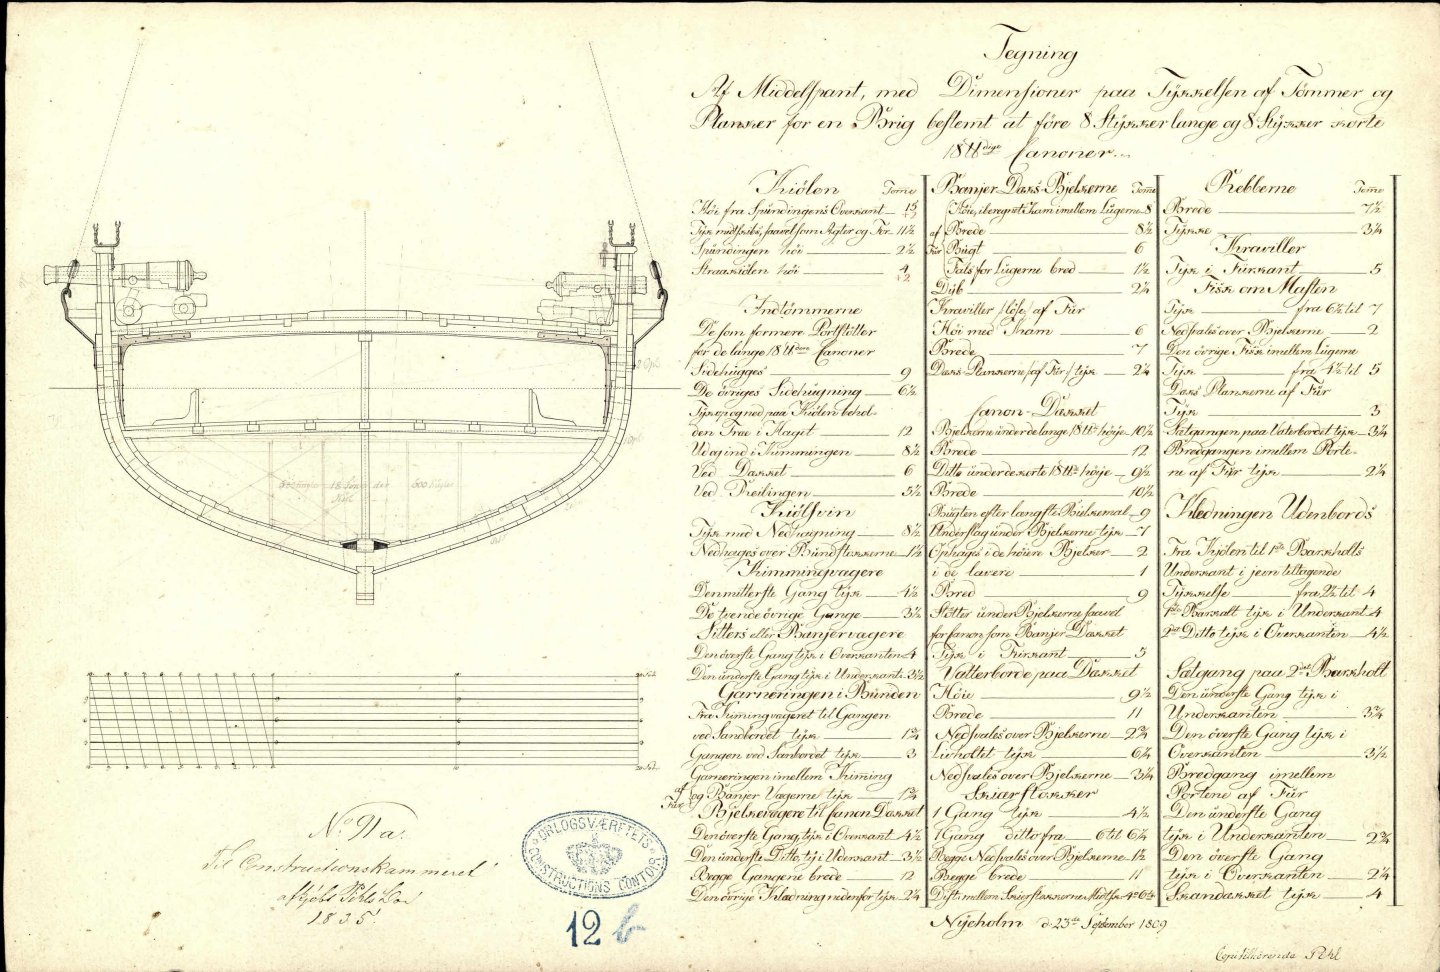 Tegning
Af Middelspant, med Dimensioner paa Tÿkkelsen af Tömmer og
Planker for en Brig bestemt at före 8 Stÿkker lange og 8 Stÿkker korte
18 ℔dige Canoner
Kiölen Tome
Höi fra Spündingens Overkant 15
Tÿk midtskibs, saavel som Agter og For 11½
Spündingen höi 2½
Straakiölen höi 4
Indtömmerne
De som formere Portstötter
for de lange 18 ℔ders Canoner
Sidehugges 9
De övriges Sidehügning 6½
Tÿk op og ned paa Kiölen behol-
den Træ i Flagit 12
Ud og ind i Kimmingen 8½
Ved Dækket 6
Ved Reilingen 5½
Kiölsvin
Tÿk med Nedhagning 8½
Nedhages over Bundstokkerne 1½
Kimmingvægere
Den mitterste Gang tÿk 4½
De tvende övrige Gange 3½
Sitters eller Banjervægere
Den överste Gang tÿk i Overkanten 4
Den ünderste Gang tÿk i Underkant 3½
Garneringen i Bunden
Fra Kimingvægeret til Gangen
ved Sandbordet tÿk 1¾
Gangen ved Sanbordet tÿk 3
Garneringen imellem Kiming
og Banjer Vægerne tÿk 1¾
af Für
Bjelkevægere til Canon Dækket
Den överste Gang, tÿk i Overkant 4½
Den ünderste Ditto, tÿ i Uderkant 3½
Begge Gangene brede 12
Den övrige Klædning nedenfor tÿk 2¼
Banjer Dæks-Bjelkerne Tome
Höie, iberegnet Kam imellem Lügerne 8
Brede 8½
af Für
Bügt 6
Fals for Lügerne bred 1½
Dÿb 2¼
Kraviller /löse/ af Für
Höi med Kam 6
Brede 7
Dæks Plankerne /af Für/ tÿk 2¼
Canon-Dækket
Bjelkerne ünder de lange 18 ℔ höije 10½
Brede 12
Ditto ünder de korte 18 ℔ höije 9½
Brede 10½
Bügten efter længste Bjelkemal 9
Underslag ünder Bjelkerne tÿk 7
Ophages i de höiere Bjelker 2
i de lavere 1
Bred 9
Stötter ünder Bjelkerne saavel
for Canon som Banjer Dækket
Tÿk i Firkant 5
Vatterborde paa Dækket
Höie 9½
Brede 11
Nedsvales over Bjelkerne 2¾
Livholtet tÿk 6¼
Nedsvales over Bjelkerne 3¼
Skiærstokker
1 Gang tÿk 4½
1 Gang ditto fra 6 til 6¼
Begge Nedsvales over Bjelkerne 1½
Begge brede 11
Dist. imellem Skierstokkerne Midtsk.
Ribberne Tome
Brede 7½
Tÿkke 3¼
Kraviller
Tÿk i Fürkant 5
Fisk om Masten
Tÿk fra 6½ til 7
Nedsvales over Bjelkerne 2
Den övrige Fisk imellem Lügerne
Tÿk fra 4½ til 5
Dæks Plankerne af Für
Tÿk 3
Sætgangen paa Vaterbordet tÿk 3¼
Bredgangen imellem Porte-
ne af Für tÿk 2¼
Klædningen Udenbords
Fra Kjölen til 1ste Barkholts
Underkant i jevn tiltagende
Tÿkkelse fra 2½ til 4
1ste Barkalt tÿk i Underkant 4
2det Ditto tÿk i Overkanten 4½
Sætgang paa 2det Barkholt
Den ünderste Gang tÿk i
Underkanten 3¾
Den överste Gang tÿk i
Overkanten 3½
Bredgang imellem
Portene af Für
Den ünderste Gang
tÿk i Underkanten 2¾
Den överste Gang
tÿk i Overkanten 2¼
Skandækket tÿk 4
Nÿeholm d. 23de September 1809
Copi tilhörende Pihl
No 91 a.
Til Constructionskammeret
1835
ORLOGSVÆRFTETS
CONSTRUCTIONS CONTOIR
12 b